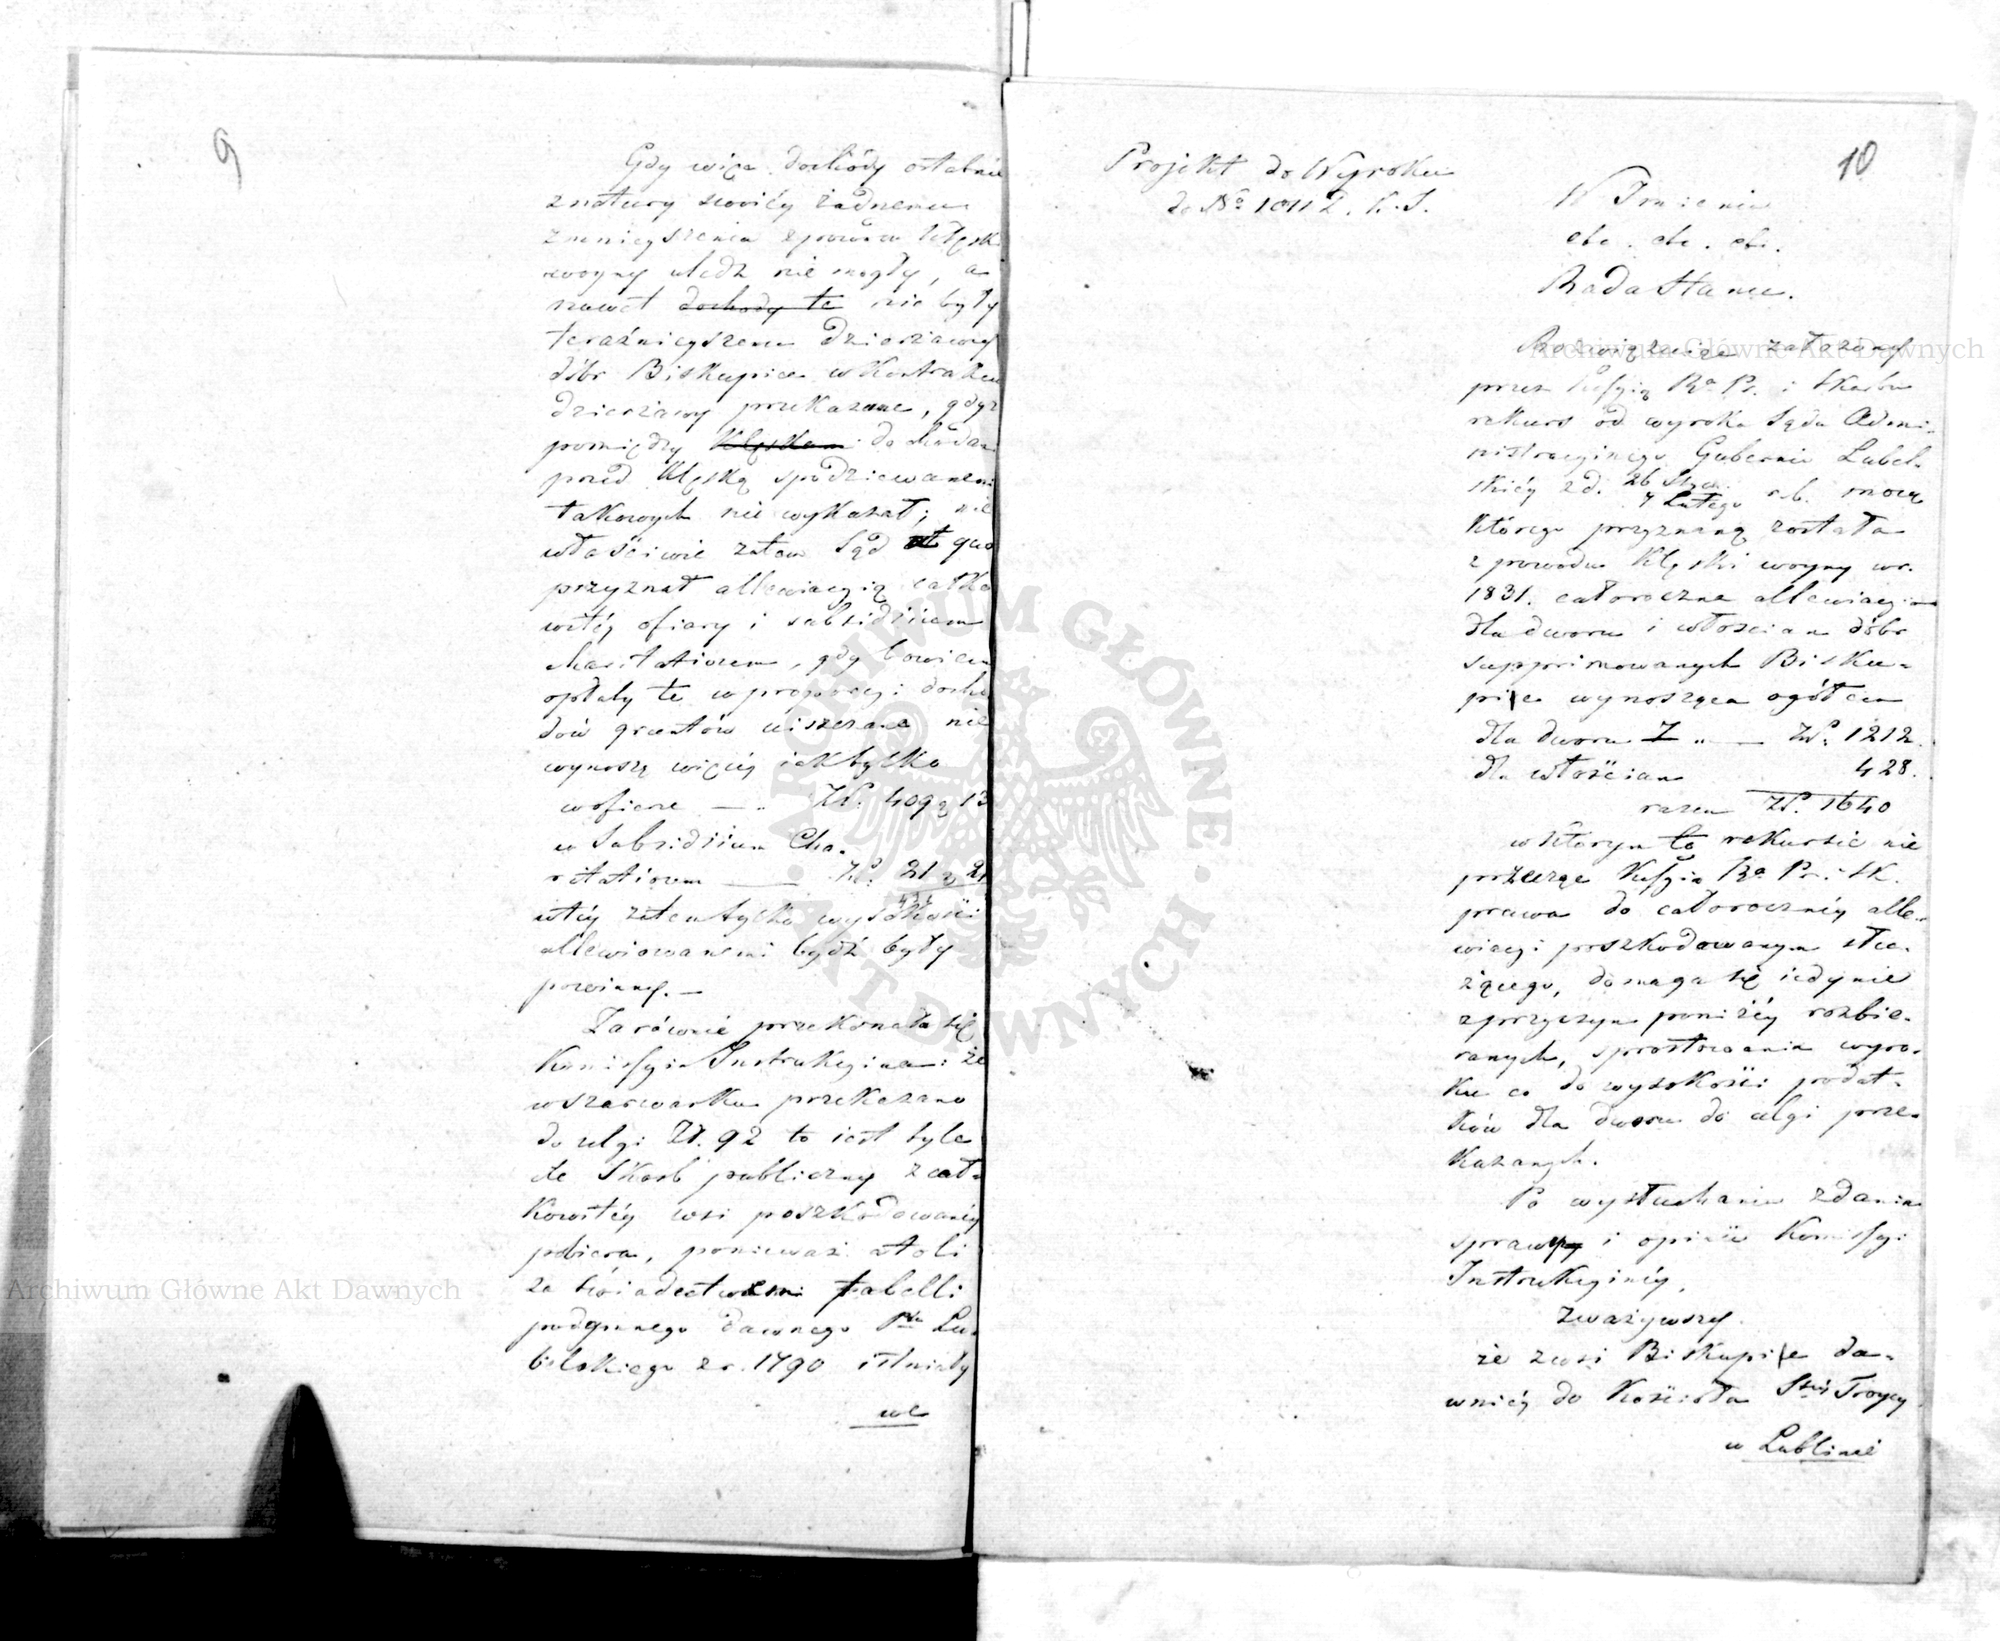 9
Gdy więc dochody ostatnie
z natury swoiéy żadnemu
zmnieyszeniu z powodu klęsk
woyny uledz nie mogły, a
nawet dochody te nie były
teraźnieyszemu dzierżawcy
dóbr Biskupice w kontrakcie
dzierżawy przekazane, gdyż
pomiędzy klęskam dochodami
przed klęską spodziewanemi
takowych nie wykazał; nie
właściwie zatem Sąd a quo
przyznał allewiacyią całko
witéy ofiary i subsidiium
charitativum, gdy bowiem
opłaty te w proporcyi docho
dów gruntów uiszczane nie
wynoszą więcéy iak tylko
w ofierze — „ Złp. 409 g 13
w Subsidiium Cha-
ritativum — Złp. 21 g 21
w téy zatem tylko wysokości
allewiowanemi bydź były
powinny. —
Zarównie przekonała się
Kommissyia Instrukcyina: że
w szarwarku przekazano
do ulgi Zł. 92 to iest tyle
ile Skarb publiczny z cał-
kowitéy wsi poszkodowanéy
pobiera, ponieważ atoli
za świadectwem tabelli
podymnego dawnego Ptu Lu-
belskiego z r. 1790 istniały
we
10
Projekt do Wyroku
do No 1011 D. K. S.
W Imieniu
etc. etc. etc.
Rada Stanu.
Rozwiązuiąc założony
przez Kssyią Rą Pr. i Skarbu
rekurs od wyroku Sądu Admi-
nistracyinego Gubernii Lubel-
skiéy z d. 26 Stycz. / 7 Lutego r. b. mocą
którego przyznaną została
z powodu klęski woyny w r.
1831. całoroczna allewiacyia
dla dworu i włościan dóbr
supprimowanych Bisku-
pice wynosząca ogółem
dla dworu „ — Złp. 1212.
dla włościan 428.
razem Złp. 1640
w którym to rekursie nie
przecząc Kssyia Rą Pr. i Sk.
prawa do całorocznéy alle-
wiacyi poszkodowanym słu-
żącego, domaga się iedynie
z przyczyn poniżéy rozbie-
ranych, sprostowania wyro-
ku co do wysokości podat-
ków dla dworu do ulgi prze-
kazanych.
Po wysłuchaniu zdania
sprawy i opinii Kommissyi
Instrukcyinéy,
Zważywszy
że z wsi Biskupice da-
wniéy do Kościoła Stéy Troycy
w Lublinie
Archiwum Główne Akt Dawnych
Archiwum Główne Akt Dawnych
ARCHIWUM GŁÓWNE · AKT DAWNYCH ·